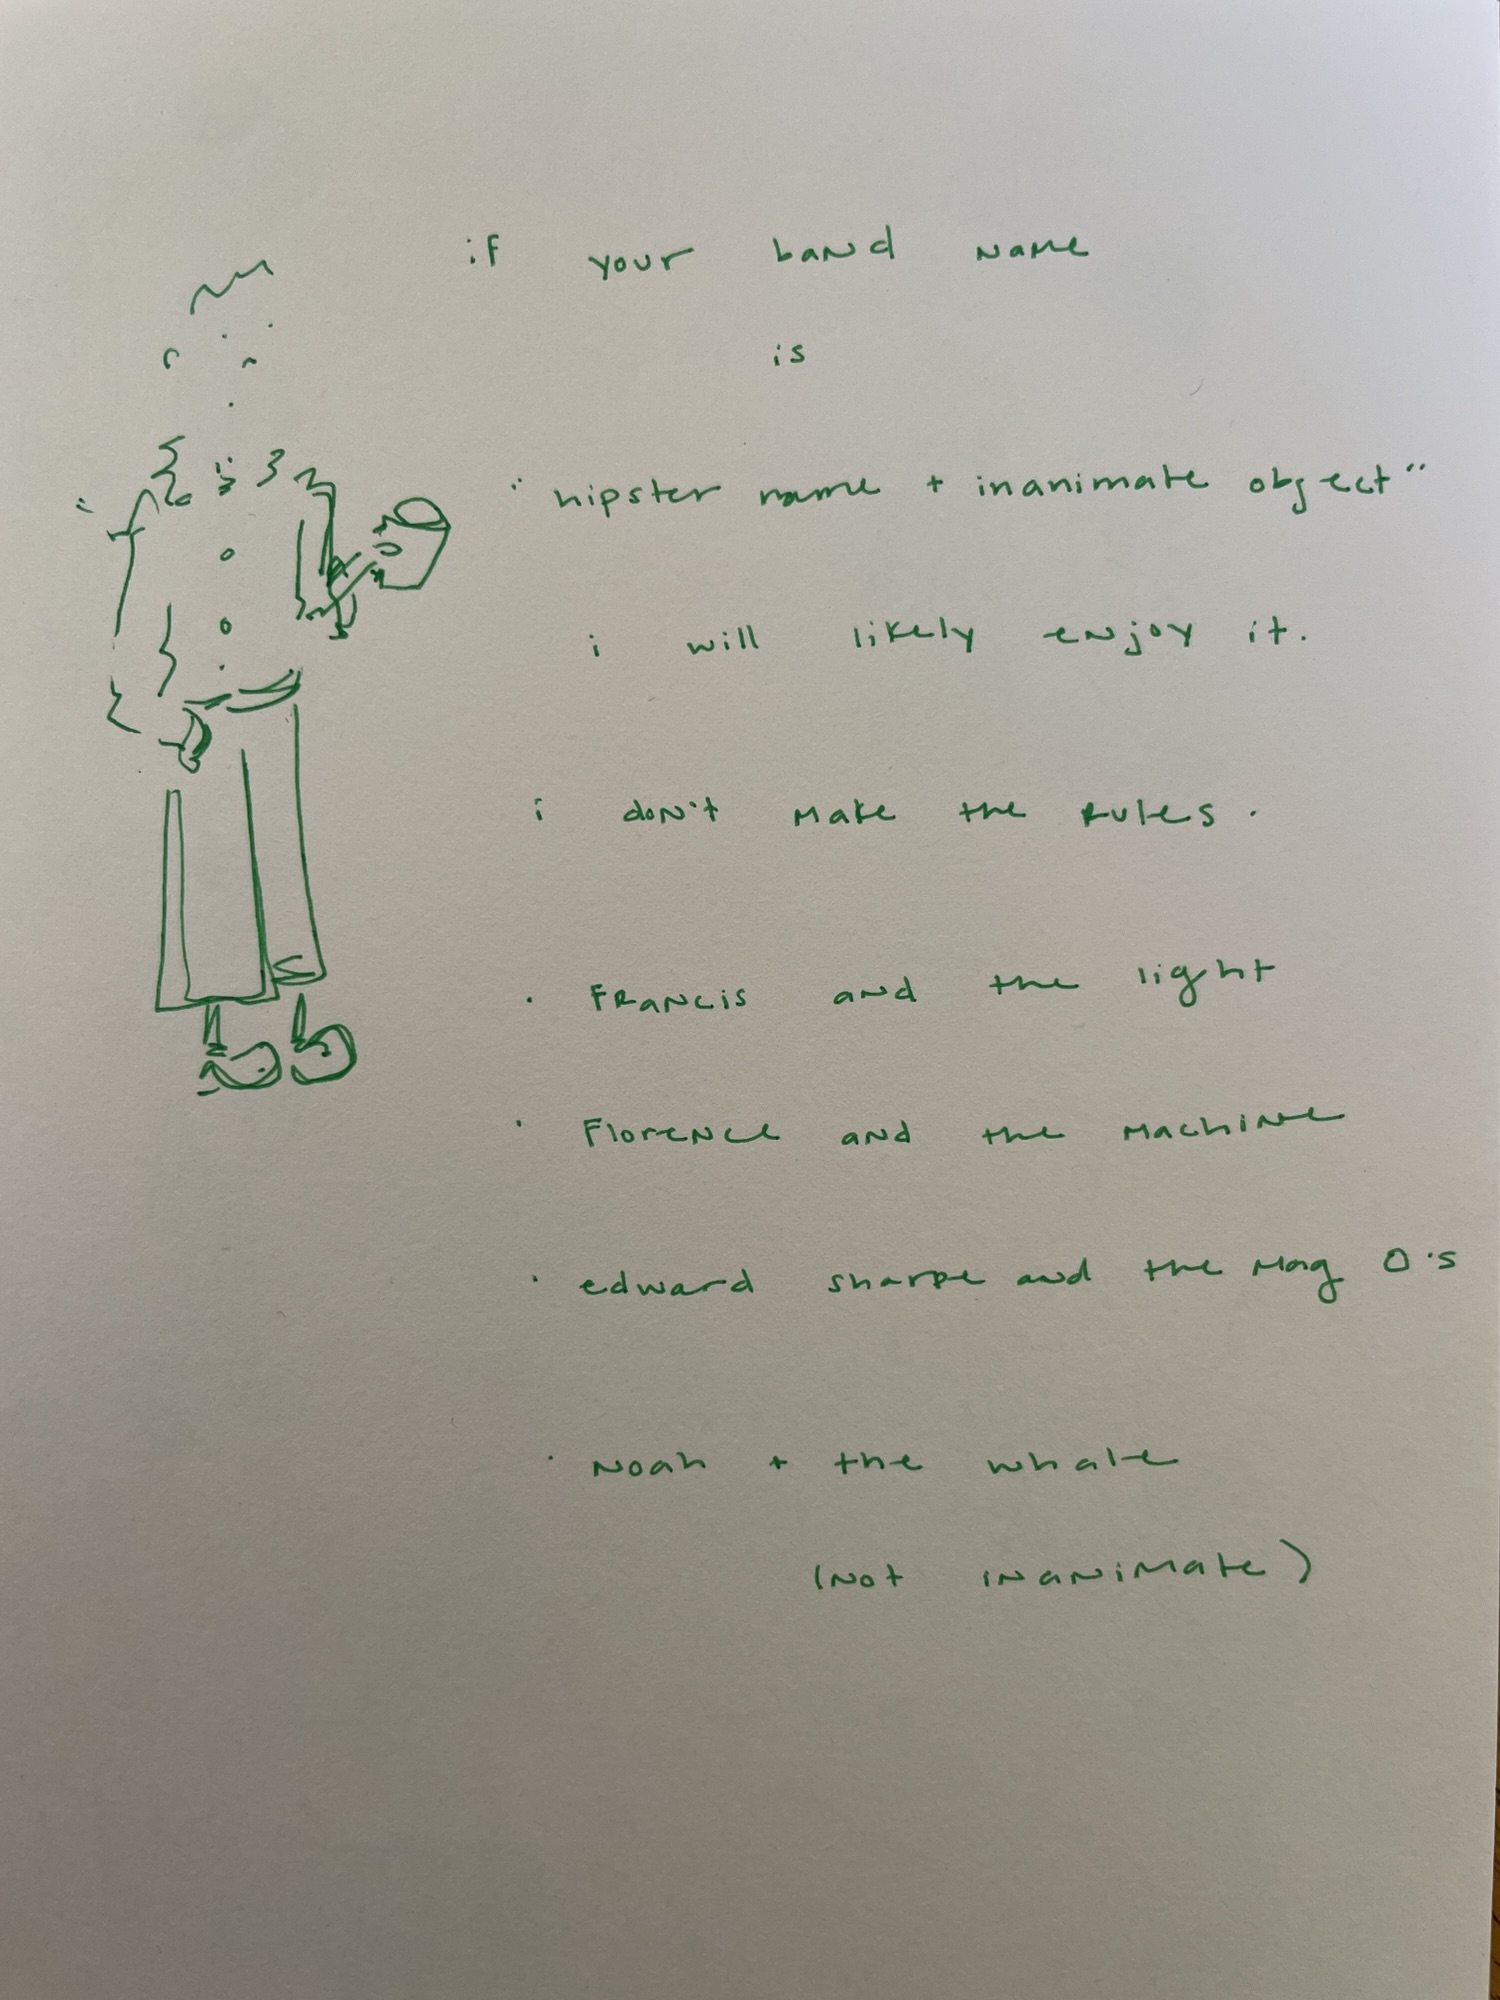 if your band name
is
"hipster name + inanimate object"
i will likely enjoy it.
i don't make the rules.
· Francis and the light
· Florence and the machine
· edward sharpe and the Mag O's
· Noah + the whale
(not inanimate)